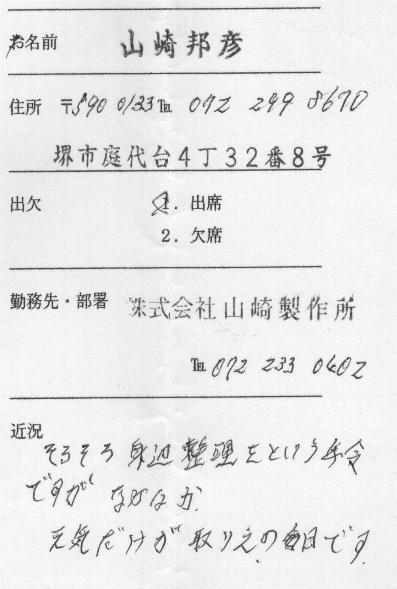 お名前 山崎邦彦
住所 〒590 0133 ℡ 072 299 8670
堺市庭代台4丁32番8号
出欠 1. 出席
2. 欠席
勤務先・部署 株式会社山崎製作所
℡ 072 233 0402
近況
そろそろ身辺整理をという年令
ですが なかなか
元気だけが取りえの毎日です